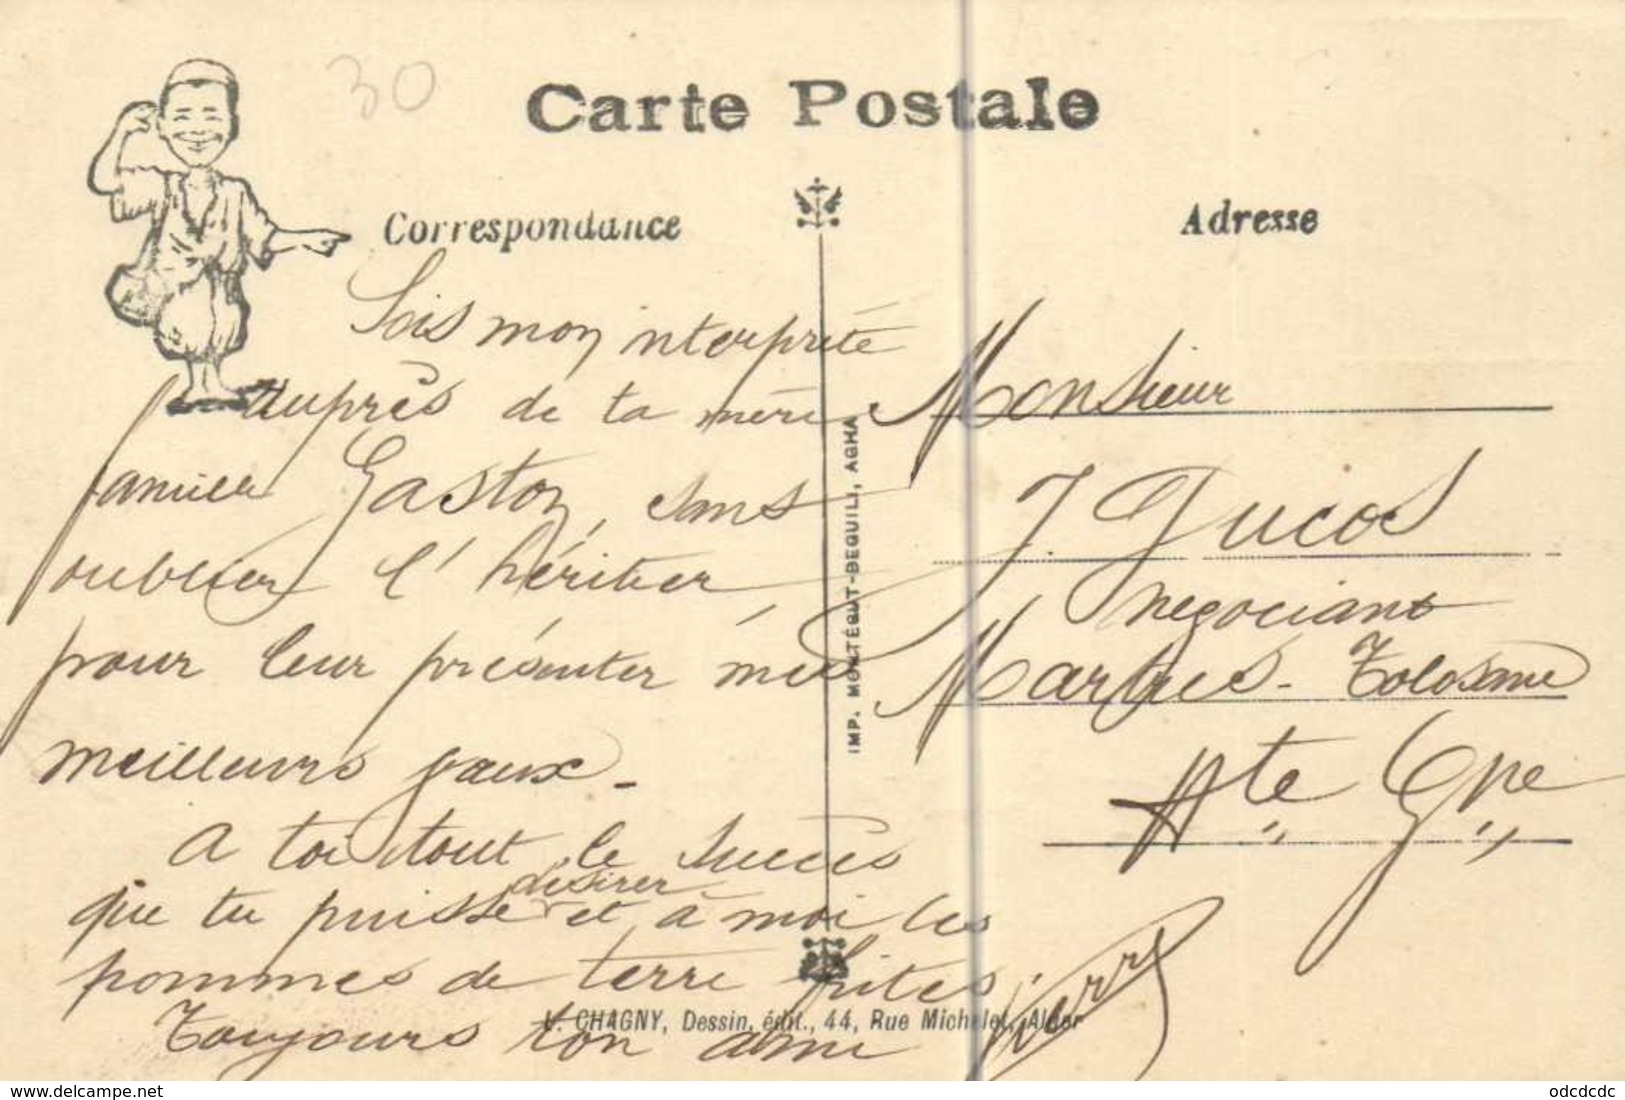 30
Carte Postale
Correspondance
Adresse
Sois mon interprète
auprès de ta mère
Gaston, sans
oublier l'héritier
pour leur présenter mes
meilleurs voeux -
A toi tout le succès
desirer
que tu puisses et à moi les
pommes de terre frites.
Toujours ton ami
Monsieur
J. Ducos
negociant
Martres-Tolosane
Hte Gne
IMP. MONTÉGUT-BEGUILI, AGHA
V. CHAGNY, Dessin. édit., 44, Rue Michelet, Alger
delcampe.net
odcdcdc